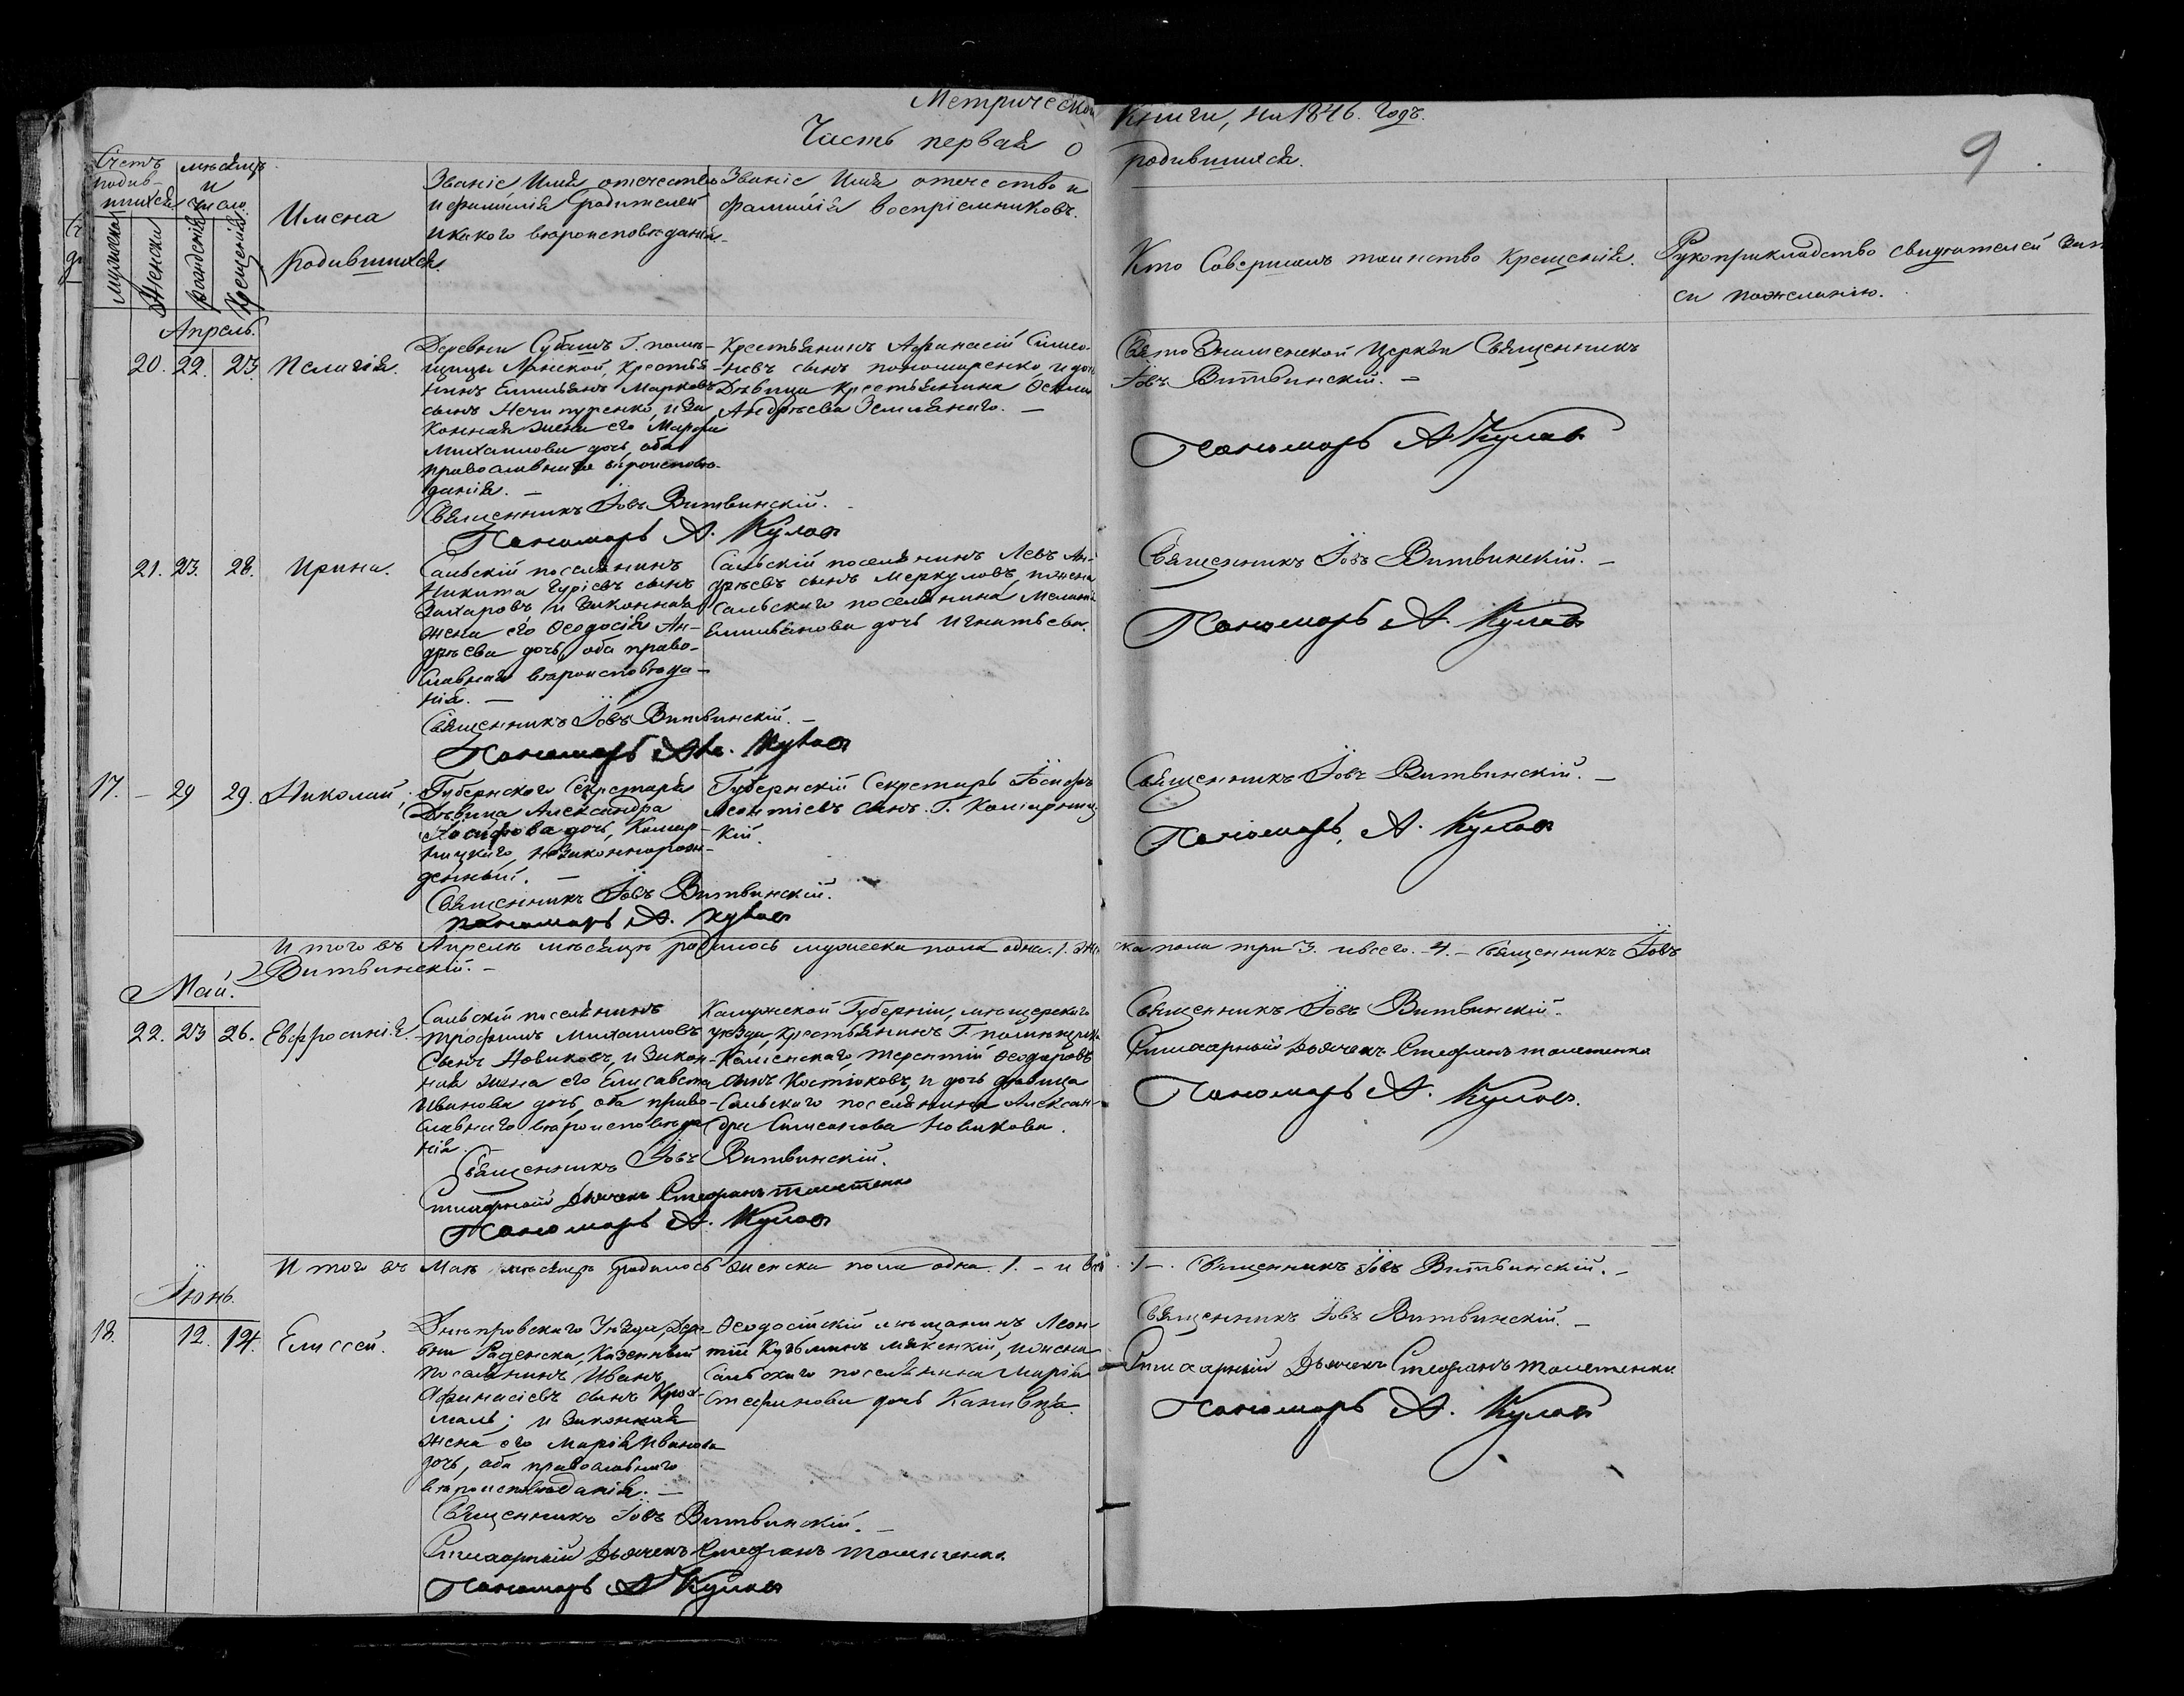 Метрической Книги, на 1846. Годъ.
Часть первая о родившихся.
9
Счетъ родив-шихся
мѣсяцъ и число.
мужеска
Женска
рожденія
Крещенія
Имена
родившихся.
Званіе, Имя, отечество
и фамилія родителей
и какого вѣроисповѣданія.
Званіе, Имя отечество и
фамилія воспріемниковъ.
Кто Совершалъ таинство Крещенія.
Рукоприкладство свидѣтелей
си по желанію.
Апрель.
20. 22. 23. Пелагія.
Деревни Субашъ Г. помѣ-
щицы Ланской, Крестья
нинъ Емилианъ Марковъ
сынъ Нечипуренко, и за
конная жена его Марфа
Михаилова дочь, оба
православнаго вѣроисповѣ-
данія. —
Священникъ Іовъ Витвинскій.
Пономарь А. Кулав
Крестьянинъ Афанасій Симео-
новъ сынъ пономаренко, и дочь
Дѣвица Крестьянина
Андрѣева Землянаго. —
Свято Знаменской Церкви Священникъ
Іовъ Витвинскій. —
Пономарь А Кулав
21. 23. 28. Ирина.
Сальскій поселянинъ
Никита Гурievъ сынъ
Захаровъ и Законная
жена его Ѳеодосія Ан-
дрѣева дочь, оба право-
славнаго вѣроисповѣда-
нія. —
Священникъ Іовъ Витвинскій. —
Пономарь А. Кулав
Сальскій поселянинъ Левъ Ан-
дрѣевъ сынъ Меркуловъ, и жена
Сальскаго поселянина Меланія
Емильянова дочь Игнатьева.
Священникъ Іовъ Витвинскій. —
Пономарь А. Кулав
17. — 29 29. Николай,
Губернскаго Секретаря
Дѣвица Александра
Іосифова дочь, Комар-
ницкаго, незаконнорож-
денный. —
Священникъ Іовъ Витвинскій.
пономарь А. Кулав
Губернскій Секретарь Іосифъ
Леонтіевъ сынъ. Г. Комарниц
кій.
Священникъ Іовъ Витвинскій. —
Пономарь, А. Кулав
И того въ Апрелѣ мѣсяцѣ родилось мужеска пола одна. 1. же ска пола три 3. и всего. 4. — Священникъ Іовъ
Витвинскій. —
Май.
22. 23 26. Евфросинія.
Сальскій поселянинъ
Трофимъ Михаиловъ
Сынъ Новиковъ, и закон-
ная жена его Елисавета
Иванова дочь, оба право-
славнаго вѣроисповѣда
нія.
Священникъ Іовъ Витвинскій.
Стихарный Дьячекъ Стефанъ
Пономарь А. Кулав
Калужской Губерніи, мещерскаго
уѣзда, Крестьянинъ Г. помѣщика
Каменскаго, Терентій Ѳеодоровъ
сынъ Костюковъ, и дочь дѣвица
Сальскаго поселянина Алексан-
дра Симеонова Новикова.
Священникъ Іовъ Витвинскій.
Стихарный Дьячекъ Стефанъ
Пономарь А. Кулав.
И того въ Маѣ мѣсяцѣ родилось женска пола одна. 1. — и все 1 —. Священникъ Іовъ Витвинскій. —
Іюнь.
18. 12. 14. Елисей.
Днѣпровскаго Уѣзда, Дер-
вни Раденска, Казенный
поселянинъ Иванъ
Афанасіевъ сынъ
маль; и законная
жена его Марія Иванова
дочь, оба православнаго
вѣроисповѣданія. —
Священникъ Іовъ Витвинскій. —
Стихарный Дьячекъ Стефанъ
Пономарь А Кулав
Ѳеодосійскій мѣщанинъ Леон-
тій Кузьминъ и жена
Сальскаго поселянина Марія
Стефанова дочь Канивца.
Священникъ Іовъ Витвинскій. —
Стихарный Дьячекъ Стефанъ
Пономарь А. Кулав